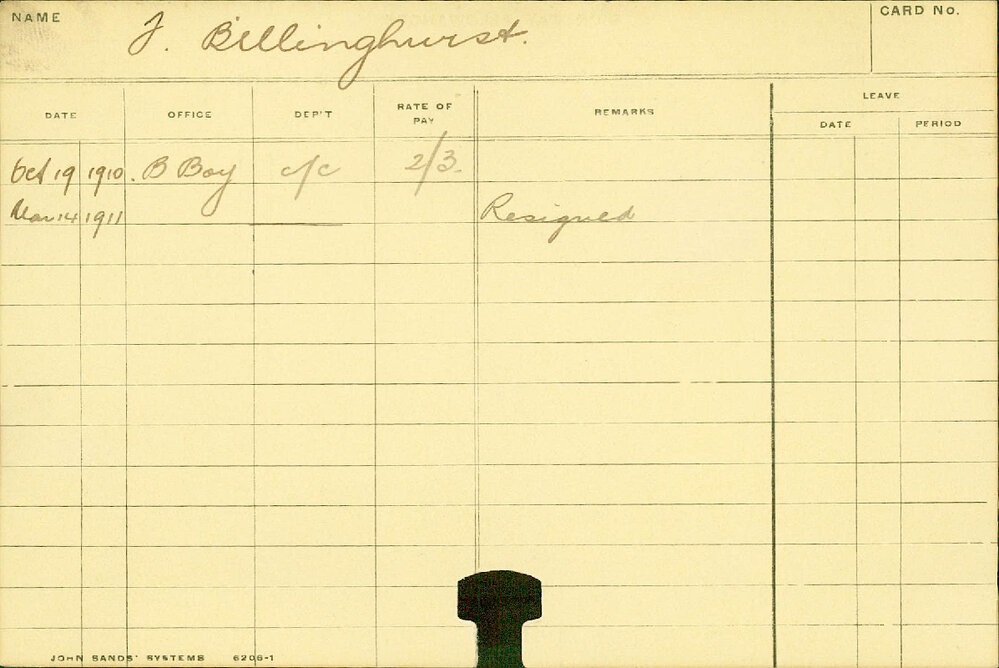 NAME J. Billinghurst. CARD No.
DATE OFFICE DEP'T RATE OF PAY REMARKS LEAVE
DATE PERIOD
Oct 19 1910. B Boy c/c 2/3.
Mar 14 1911 Resigned
JOHN SANDS' SYSTEMS 6206-1